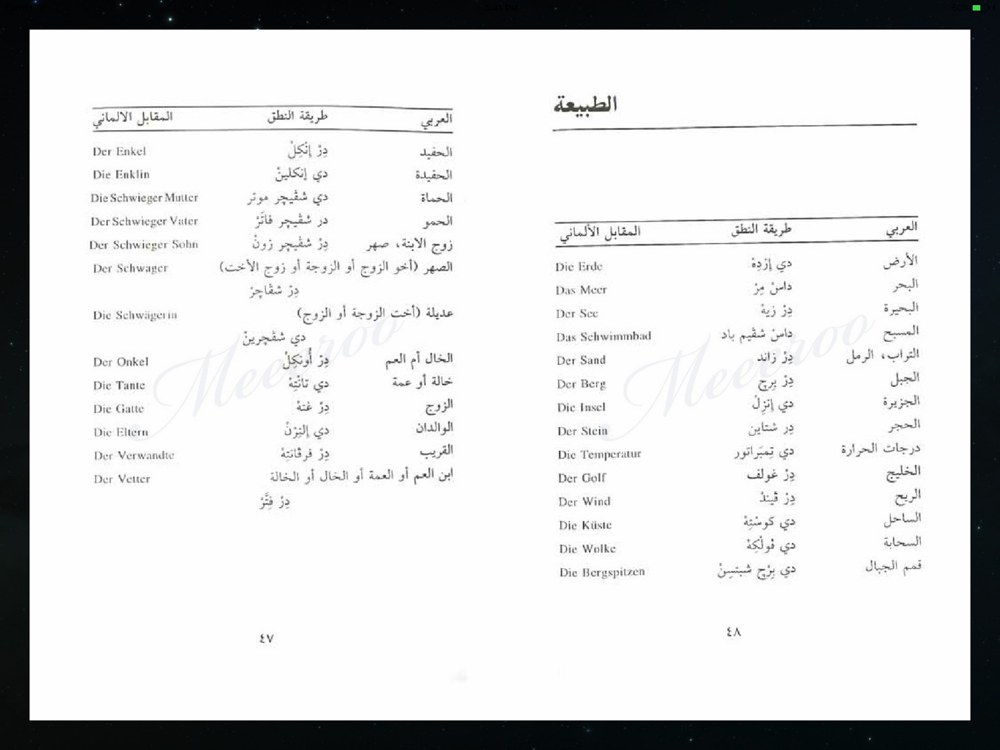 العربي طريقة النطق المقابل الالماني
الحفيد دِرْ إنْكِلْ Der Enkel
الحفيدة دي إنكلينْ Die Enklin
الحماة دي شڤيچر موتر Die Schwieger Mutter
الحمو در شڤيچر فاتَرْ Der Schwieger Vater
زوج الابنة، صهر دِرْ شڤيچر زونْ Der Schwieger Sohn
الصهر (أخو الزوج أو الزوجة أو زوج الأخت) Der Schwager
دِرْ شڤاچِرْ
عديلة (أخت الزوجة أو الزوج) Die Schwägerin
دي شڤچرينْ
الخال أم العم دِرْ أُونكِلْ Der Onkel
خالة أو عمة دي تانْتِهْ Die Tante
الزوج دِرْ غَتهْ Die Gatte
الوالدان دي إلترْنْ Die Eltern
القريب دِرْ فرڤانتِهْ Der Verwandte
ابن العم أو العمة أو الخال أو الخالة Der Vetter
دِرْ فِتَّرْ
٤٧
الطبيعة
العربي طريقة النطق المقابل الألماني
الأرض دي إرْدِهْ Die Erde
البحر داسْ مِرْ Das Meer
البحيرة دِرْ زيهْ Der See
المسبح داسْ شڤيم باد Das Schwimmbad
التراب، الرمل دِرْ زاند Der Sand
الجبل دِرْ بِرچ Der Berg
الجزيرة دي إنزِلْ Die Insel
الحجر دِر شتاين Der Stein
درجات الحرارة دي تِمبَراتور Die Temperatur
الخليج دِرْ غولف Der Golf
الريح دِرْ ڤيندْ Der Wind
الساحل دي كوسْتِهْ Die Küste
السحابة دي ڤولْكِهْ Die Wolke
قمم الجبال دي بِرْچ شبتسِنْ Die Bergspitzen
٤٨
Meeeroo
Meeeroo